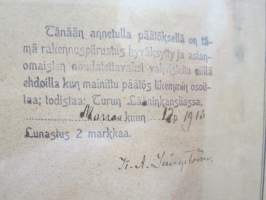 Tänään annetulla päätöksellä on tä-
mä rakennuspiirustus hyväksytty ja asian-
omaisten noudatettavaksi vahvistettu niillä
ehdoilla kun mainittu päätös likemmin osoit-
taa; todistaa; Turun Lääninkansliassa,
Marras kuun 12 p 1913
Lunastus 2 markkaa.
K. A.